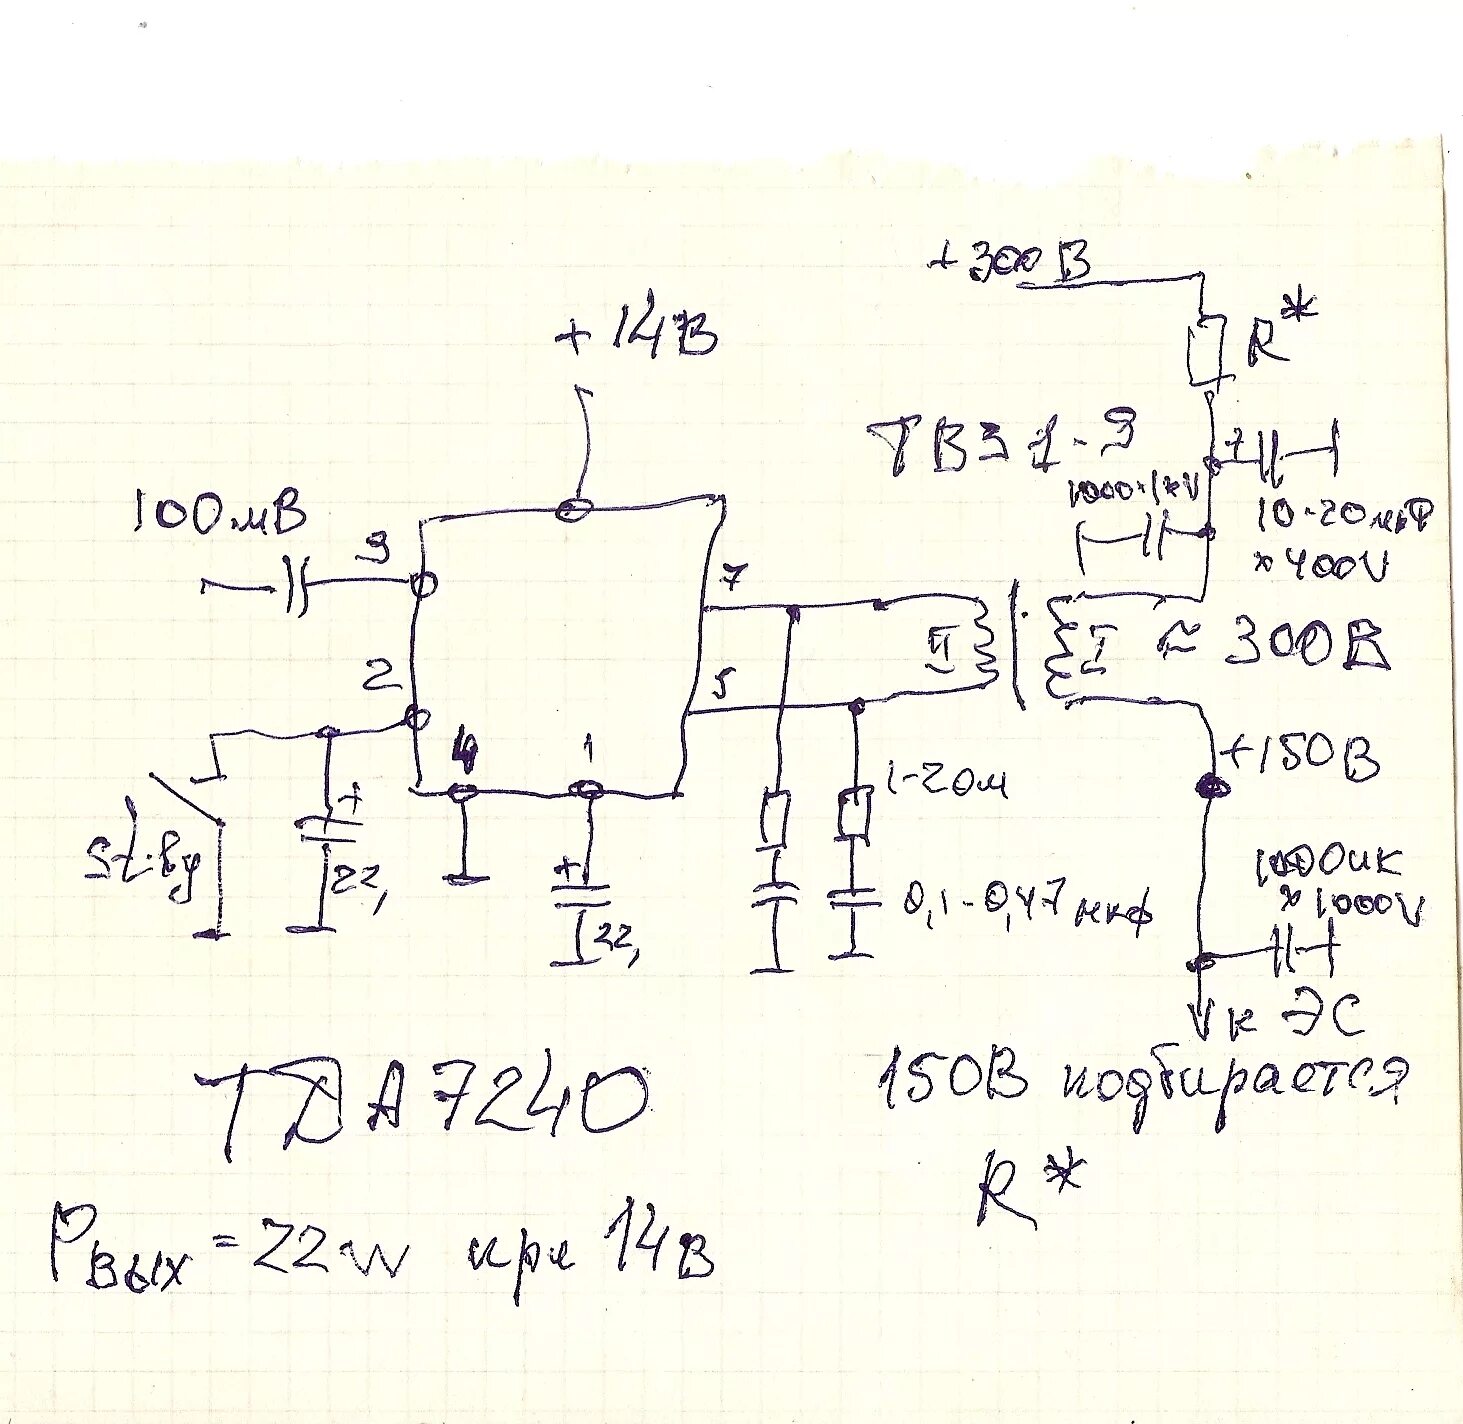 +300В
R*
+14В
ТВЗ 1-9
1000×1kV
10-20мкФ
×400V
100мВ
3
7
2
II
I
≈ 300В
5
4
1
+150В
1-2Ом
St-by
+
22,
+
22,
0,1-0,47мкф
1000пк
×1000V
к ЭС
TDA7240
150В подбирается
R*
Рвых = 22w при 14В